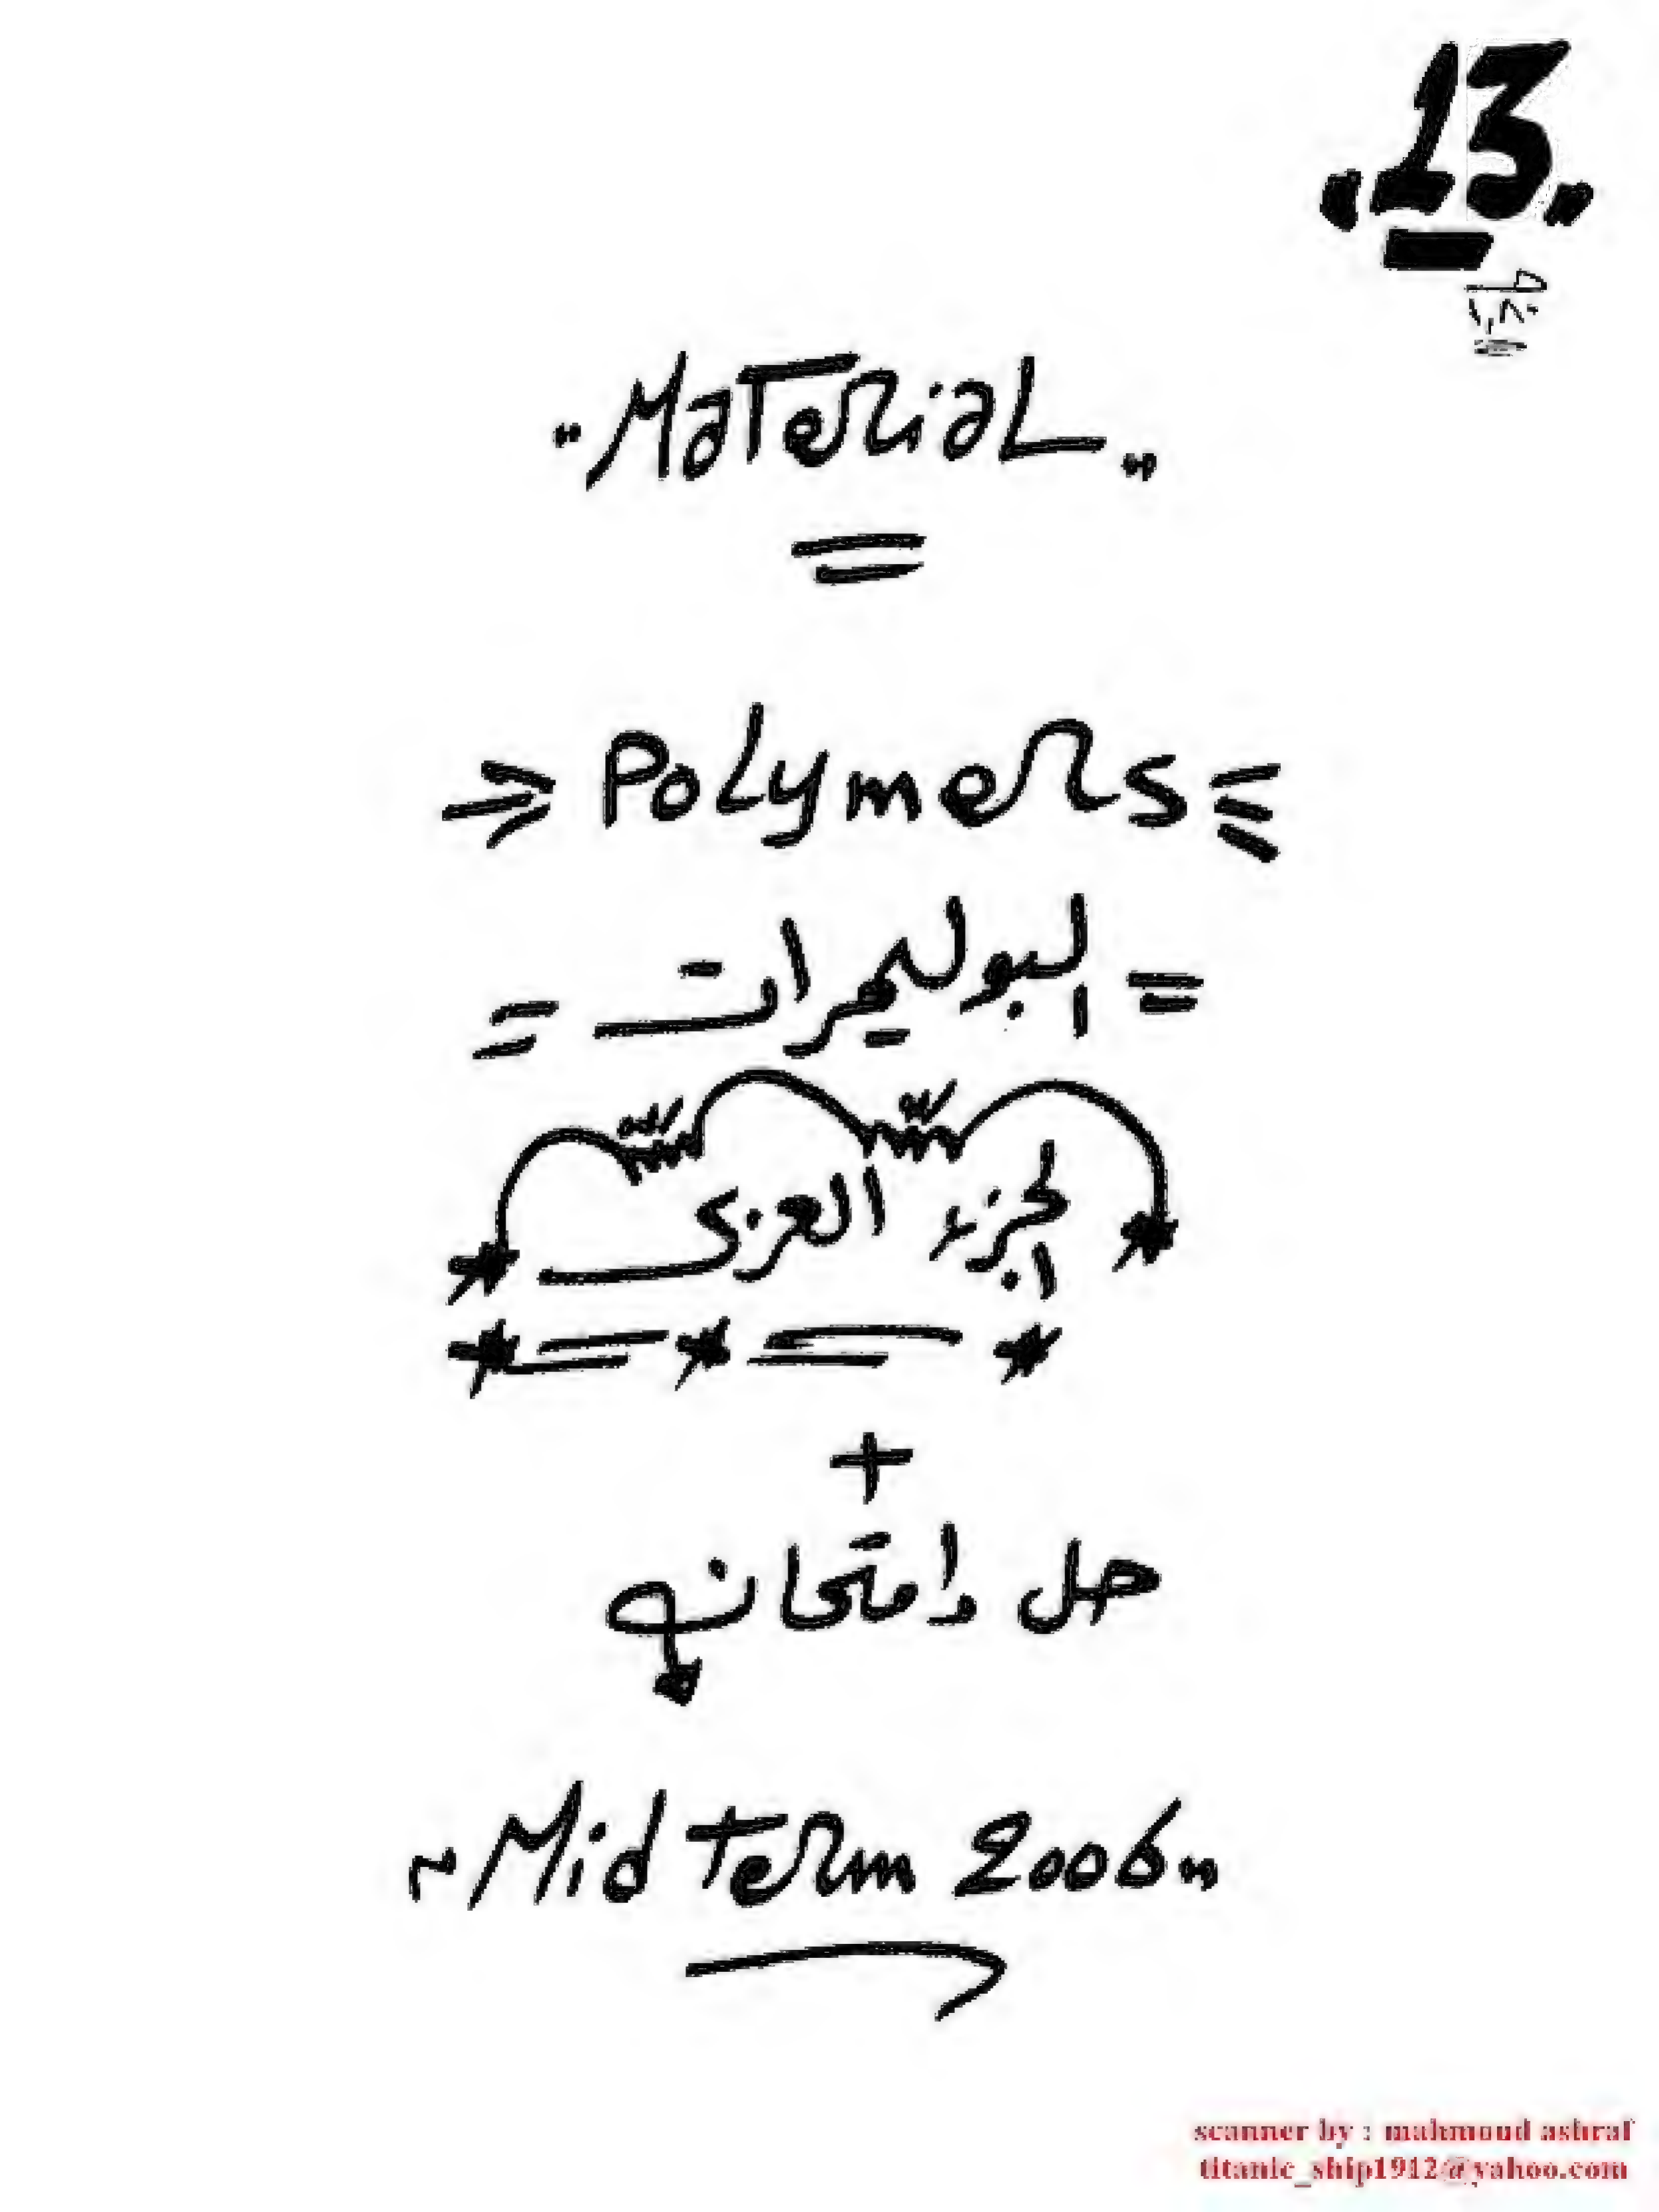 "13"
"Material"
Polymers
= البوليمرات =
الجزء العربى
+
حل امتحان
"Mid term 2006"
scanner by : mahmoud ashraf
titanic_ship1912@yahoo.com